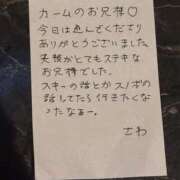 カームのお兄様♡
今日は遊んでくださり
ありがとうございました。
笑顔がとてもステキな
お兄様でした。
スキーの話とかスノボの
話してたら行きたくな
ったなぁー。
さわ